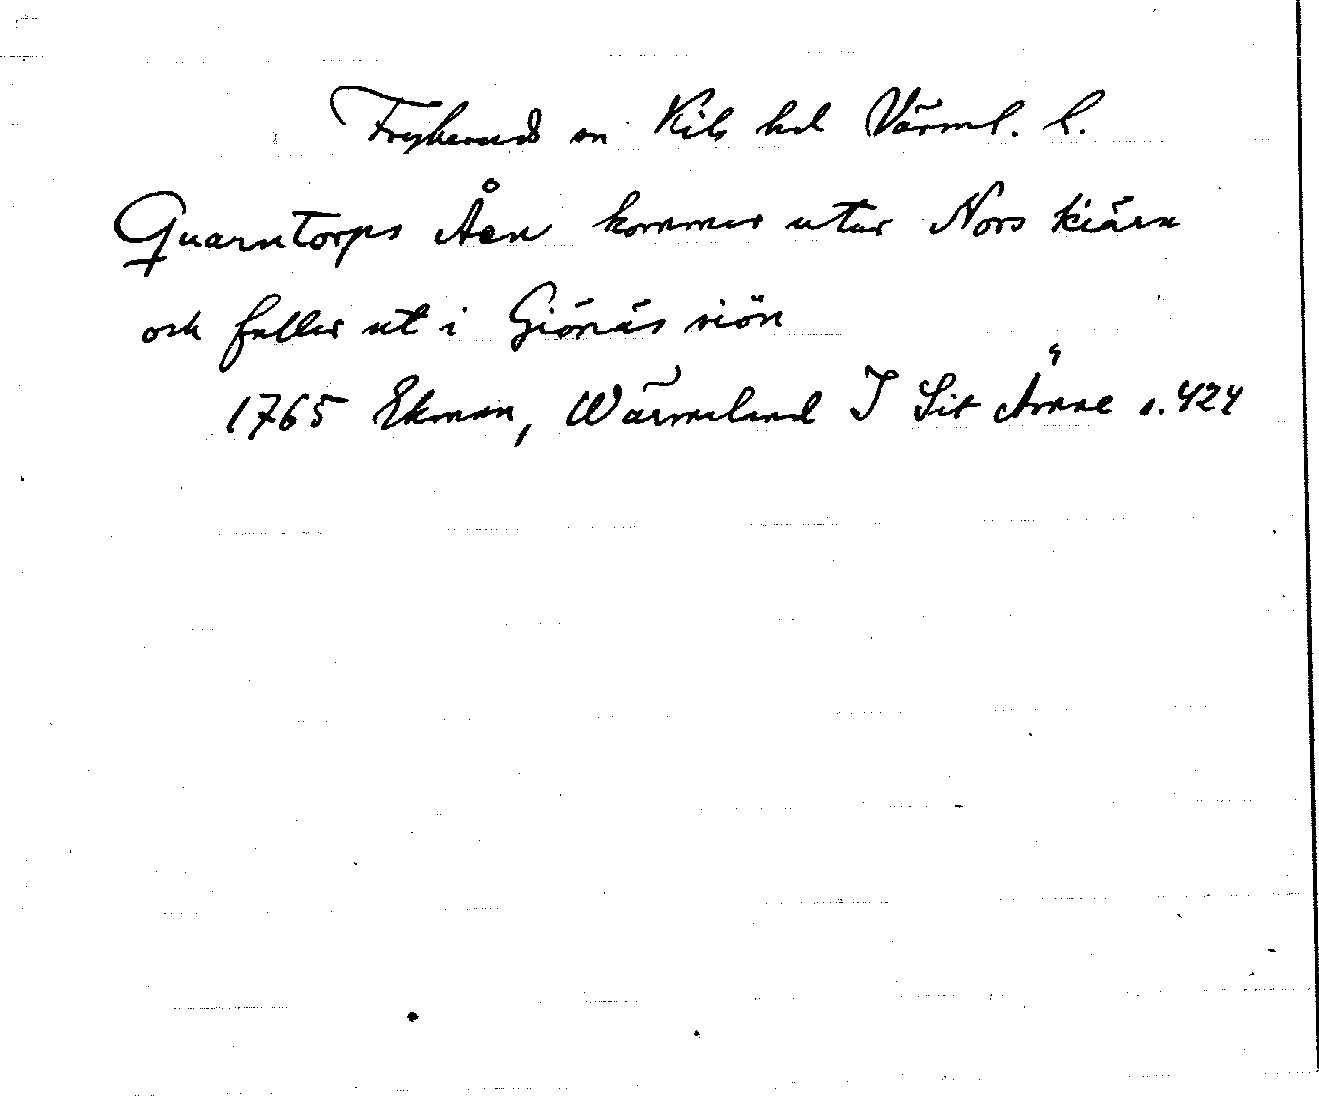 Frykerud sn Kils hd Värml. l.
Quarntorps Åen kommer utur Nors kiärn
och faller ut i Giönäs siön
1765 Ekman, Wärmeland I Sit Ämne s. 424